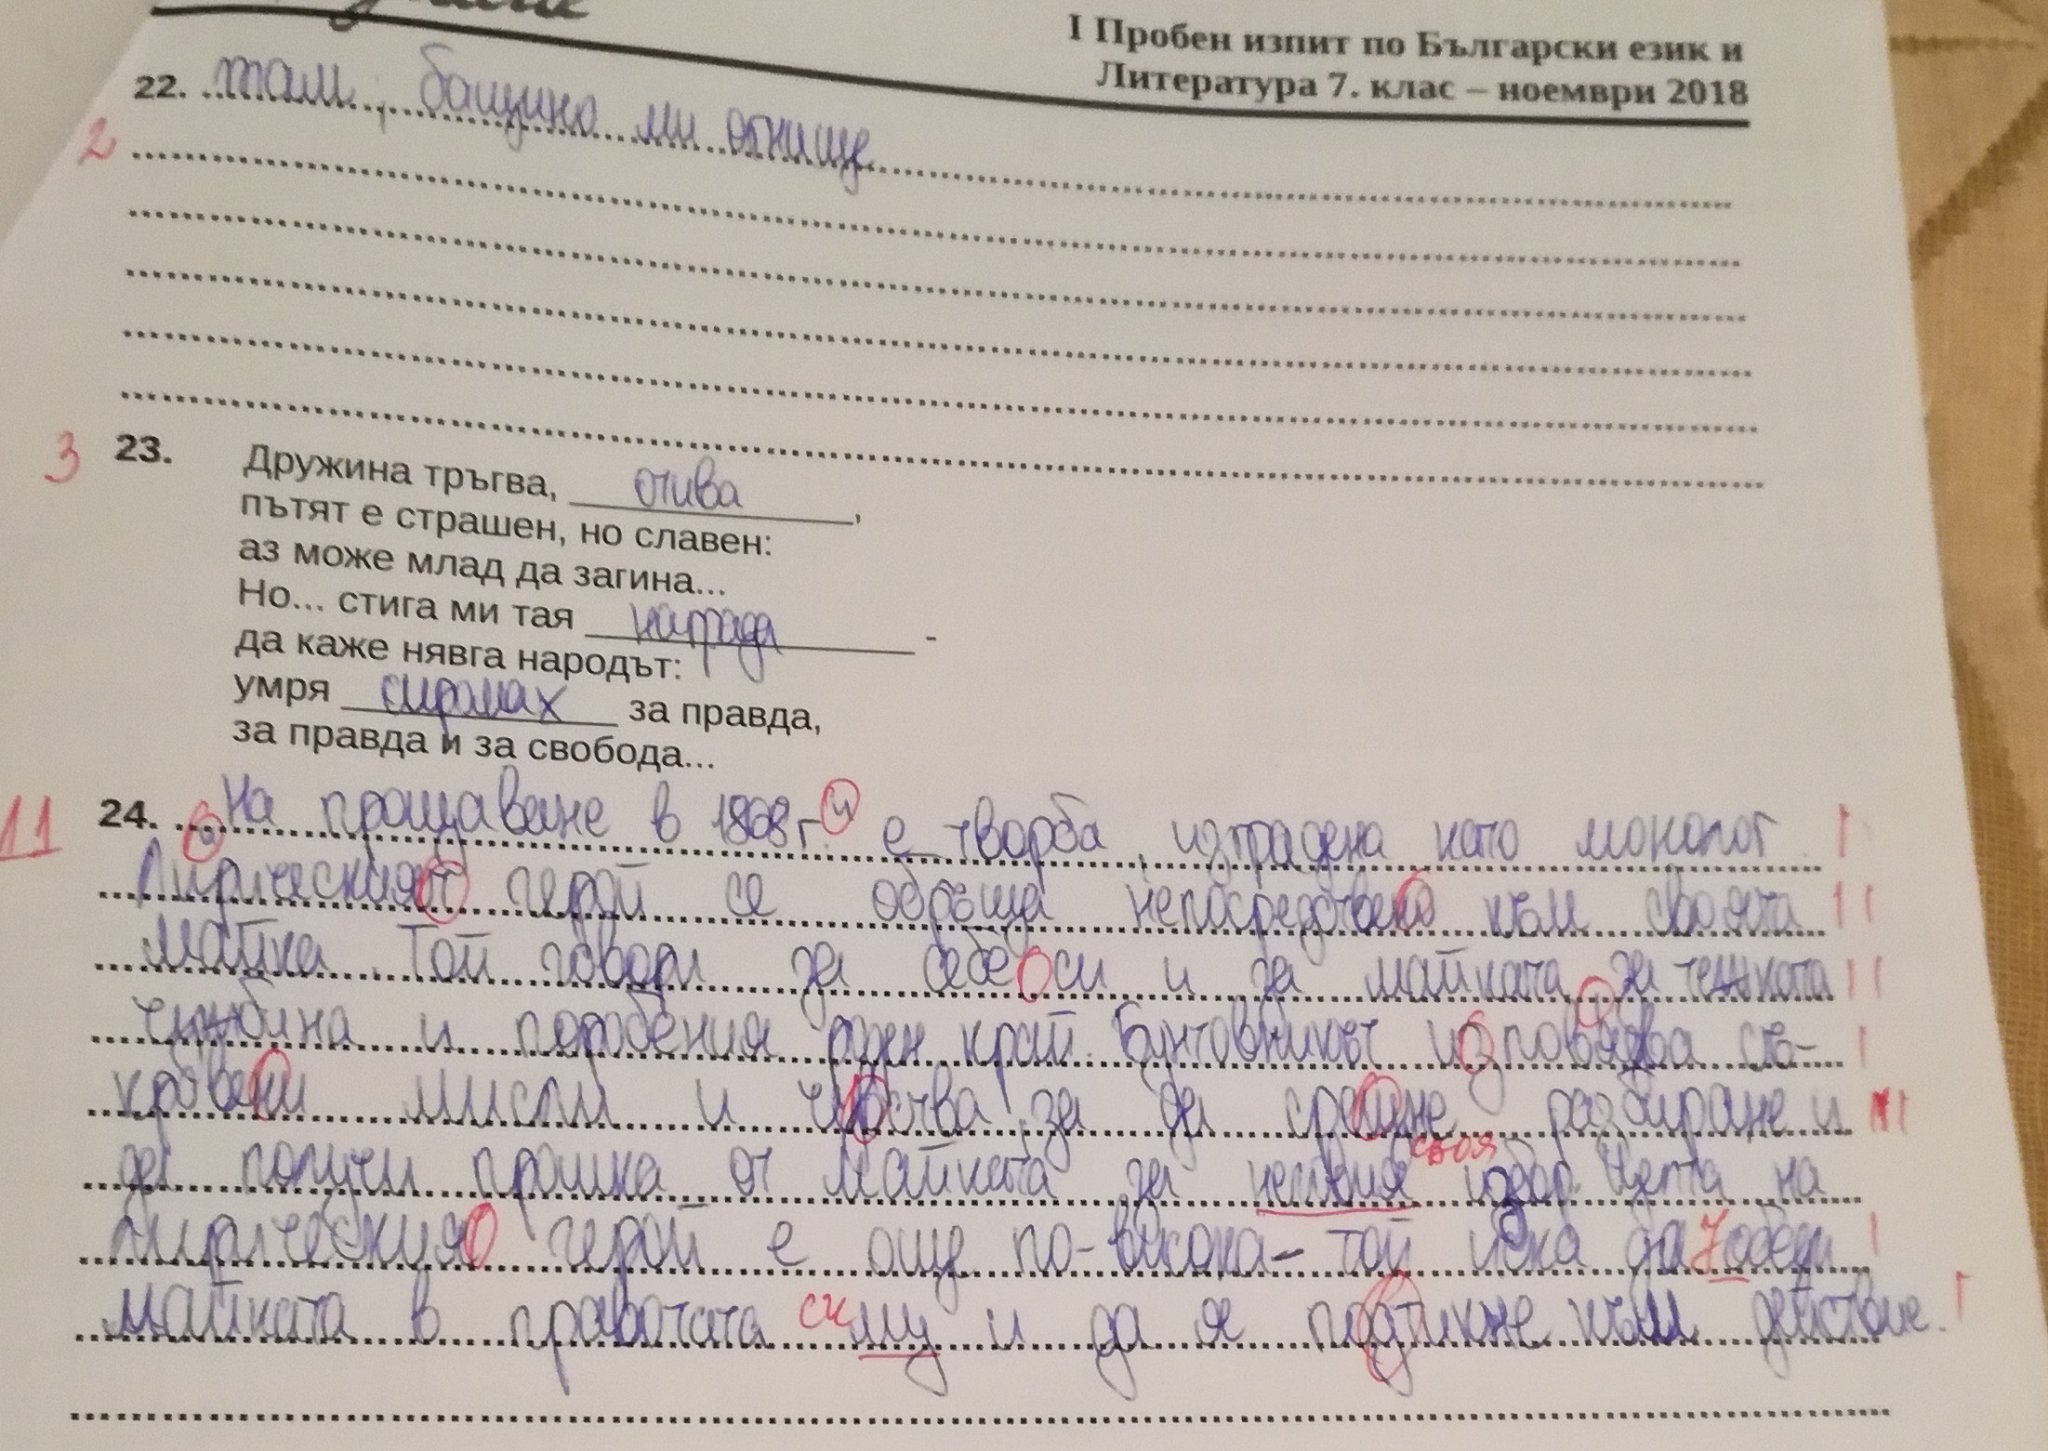 I Пробен изпит по Български език и
Литература 7. клас – ноември 2018
22. там, бащино ми огнище
2
3 23. Дружина тръгва, отива,
пътят е страшен, но славен:
аз може млад да загина...
Но... стига ми тая награда -
да каже нявга народът:
умря сиромах за правда,
за правда и за свобода...
11 24. „На прощаване в 1868 г.“ е творба, изградена като монолог.
Лирическият герой се обръща непосредствено към своята
майка. Той говори за себе си и за майката, за тежката
чужбина и поробения роден край. Бунтовникът изповядва съ-
кровени мисли и чувства, за да срещне разбиране и
да получи прошка от майката за неговия своя избор. Целта на
лирическия герой е още по-висока – той иска да убеди
майката в правотата си му и да я подтикне към действие.